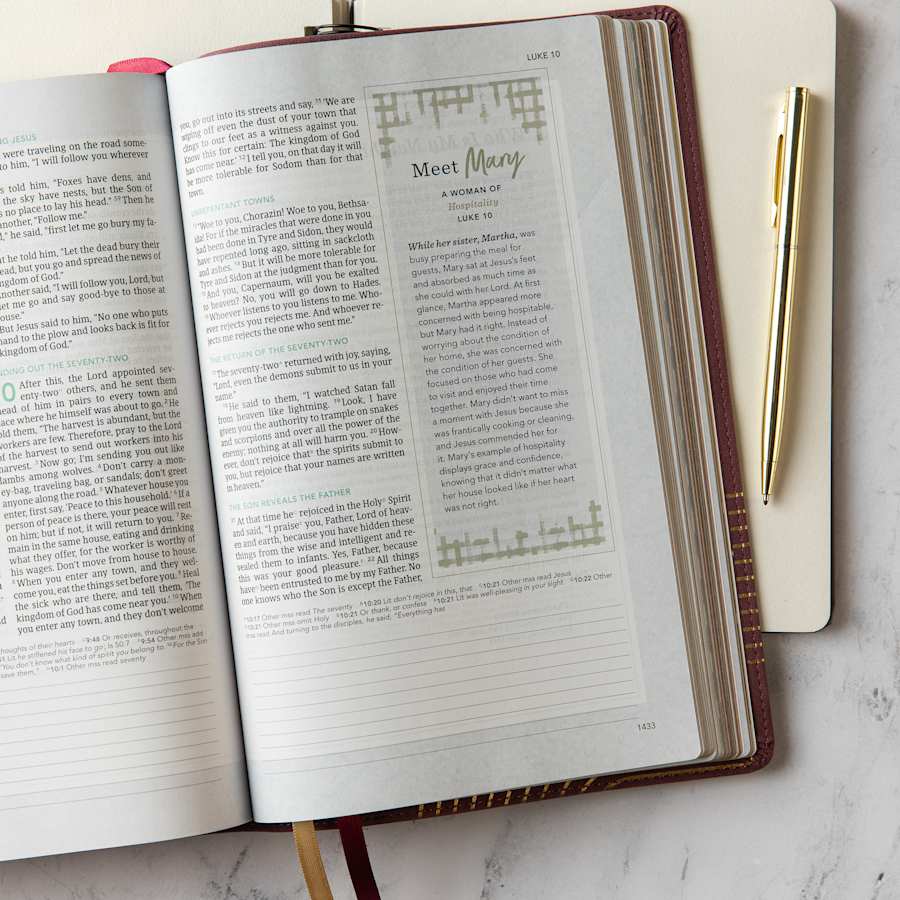 NG JESUS
were traveling on the road some-
to him, "I will follow you wherever
s told him, "Foxes have dens, and
the sky have nests, but the Son of
s no place to lay his head." 59 Then he
another, "Follow me."
d," he said, "first let me go bury my fa-
t he told him, "Let the dead bury their
ead, but you go and spread the news of
ngdom of God."
Another said, "I will follow you, Lord, but
let me go and say good-bye to those at
ouse."
But Jesus said to him, "No one who puts
hand to the plow and looks back is fit for
kingdom of God."
NDING OUT THE SEVENTY-TWO
0 After this, the Lord appointed sev-
enty-two others, and he sent them
head of him in pairs to every town and
lace where he himself was about to go. 2 He
old them, "The harvest is abundant, but the
workers are few. Therefore, pray to the Lord
of the harvest to send out workers into his
harvest. 3 Now go; I'm sending you out like
lambs among wolves. 4 Don't carry a mon-
ey-bag, traveling bag, or sandals; don't greet
anyone along the road. 5 Whatever house you
enter, first say, 'Peace to this household.' 6 If a
person of peace is there, your peace will rest
on him; but if not, it will return to you. 7 Re-
main in the same house, eating and drinking
what they offer, for the worker is worthy of
his wages. Don't move from house to house.
8 When you enter any town, and they wel-
come you, eat the things set before you. 9 Heal
the sick who are there, and tell them, 'The
kingdom of God has come near you.' 10 When
you enter any town, and they don't welcome
thoughts of their hearts 9:48 Or receives, throughout the
Lit he stiffened his face to go; Is 50:7 9:54 Other mss add
"You don't know what kind of spirit you belong to. 56 For the Son
save them," 10:1 Other mss read seventy
LUKE 10
you, go out into its streets and say, 11 'We are
wiping off even the dust of your town that
clings to our feet as a witness against you.
Know this for certain: The kingdom of God
has come near.' 12 I tell you, on that day it will
be more tolerable for Sodom than for that
town.
UNREPENTANT TOWNS
13 "Woe to you, Chorazin! Woe to you, Bethsa-
ida! For if the miracles that were done in you
had been done in Tyre and Sidon, they would
have repented long ago, sitting in sackcloth
and ashes. 14 But it will be more tolerable for
Tyre and Sidon at the judgment than for you.
15 And you, Capernaum, will you be exalted
to heaven? No, you will go down to Hades.
16 Whoever listens to you listens to me. Who-
ever rejects you rejects me. And whoever re-
jects me rejects the one who sent me."
THE RETURN OF THE SEVENTY-TWO
17 The seventy-two returned with joy, saying,
"Lord, even the demons submit to us in your
name."
18 He said to them, "I watched Satan fall
from heaven like lightning. 19 Look, I have
given you the authority to trample on snakes
and scorpions and over all the power of the
enemy; nothing at all will harm you. 20 How-
ever, don't rejoice that the spirits submit to
you, but rejoice that your names are written
in heaven."
THE SON REVEALS THE FATHER
21 At that time he rejoiced in the Holy Spirit
and said, "I praise you, Father, Lord of heav-
en and earth, because you have hidden these
things from the wise and intelligent and re-
vealed them to infants. Yes, Father, because
this was your good pleasure. 22 All things
have been entrusted to me by my Father. No
one knows who the Son is except the Father,
Meet Mary
A WOMAN OF
Hospitality
LUKE 10
While her sister, Martha, was
busy preparing the meal for
guests, Mary sat at Jesus's feet
and absorbed as much as time
she could with her Lord. At first
glance, Martha appeared more
concerned with being hospitable,
but Mary had it right. Instead of
worrying about the condition of
her home, she was concerned with
the condition of her guests. She
focused on those who had come
to visit and enjoyed their time
together. Mary didn't want to miss
a moment with Jesus because she
was frantically cooking or cleaning,
and Jesus commended her for
it. Mary's example of hospitality
displays grace and confidence,
knowing that it didn't matter what
her house looked like if her heart
was not right.
10:17 Other mss read The seventy 10:20 Lit don't rejoice in this, that 10:21 Other mss read Jesus
10:21 Other mss omit Holy 10:21 Or thank, or confess 10:21 Lit was well-pleasing in your sight 10:22 Other
mss read And turning to the disciples, he said, "Everything has
1433